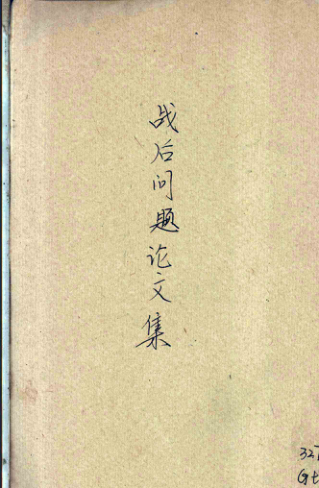 战后问题论文集
327